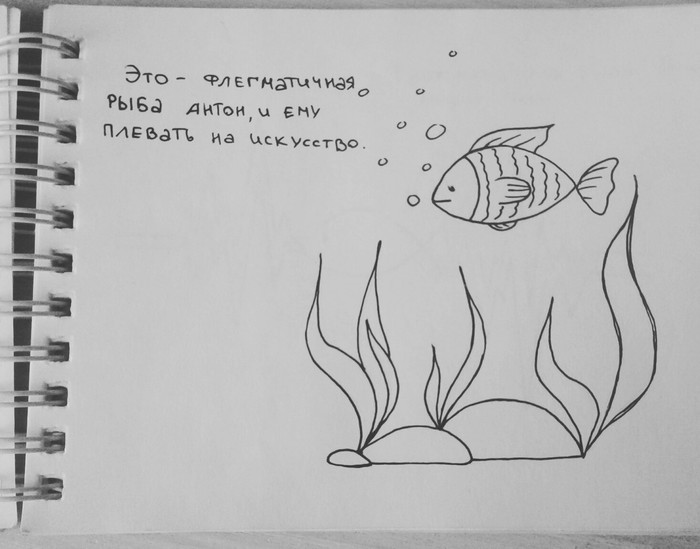 Это - флегматичная
рыба Антон, и ему
плевать на искусство.